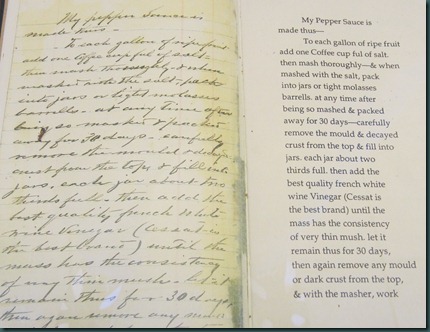 My pepper Sauce is
made thus —
— To each gallon of ripe fruit
add one Coffee cup ful of salt.
then mash thoroughly, & when
mashed with the salt, pack
into jars or tight molasses
barrells. at any time after
being so mashed & packed
away for 30 days — carefully
remove the mould & decayed
crust from the top & fill into
jars. each jar about two
thirds full. then add the
best quality french white
wine Vinegar (Cessat is
the best brand) until the
mass has the consistency
of very thin mush. let it
remain thus for 30 days,
then again remove any mould
My Pepper Sauce is
made thus—
To each gallon of ripe fruit
add one Coffee cup ful of salt.
then mash thoroughly—& when
mashed with the salt, pack
into jars or tight molasses
barrells. at any time after
being so mashed & packed
away for 30 days—carefully
remove the mould & decayed
crust from the top & fill into
jars. each jar about two
thirds full. then add the
best quality french white
wine Vinegar (Cessat is
the best brand) until the
mass has the consistency
of very thin mush. let it
remain thus for 30 days,
then again remove any mould
or dark crust from the top,
& with the masher, work